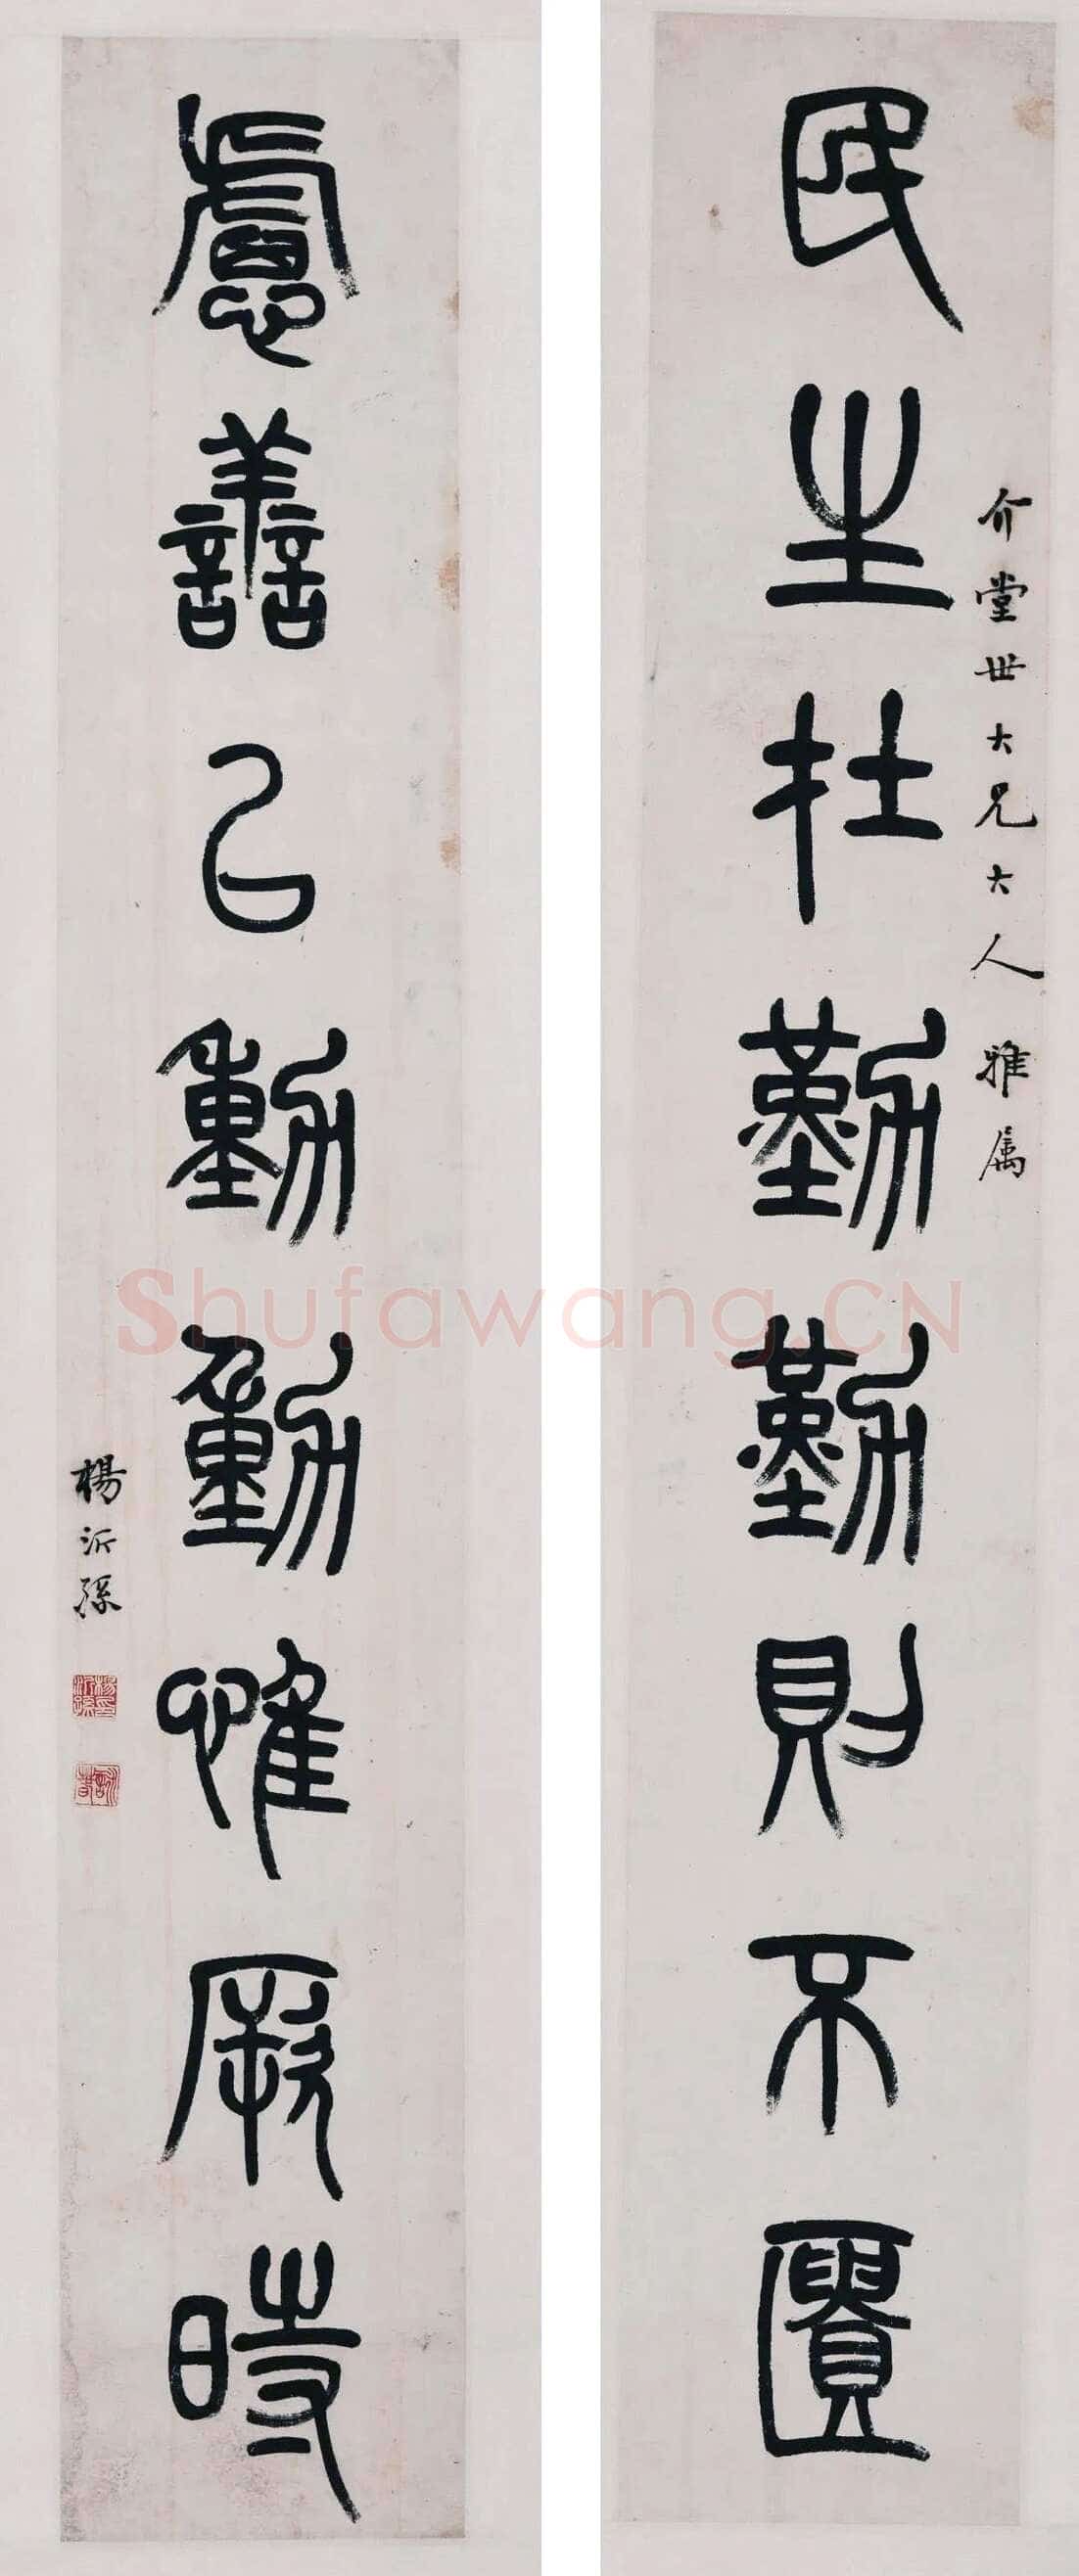 民生在勤勤則不匱
介堂世大兄大人雅属
慮善㠯動動惟厥時
楊沂孫
Shufawang.CN